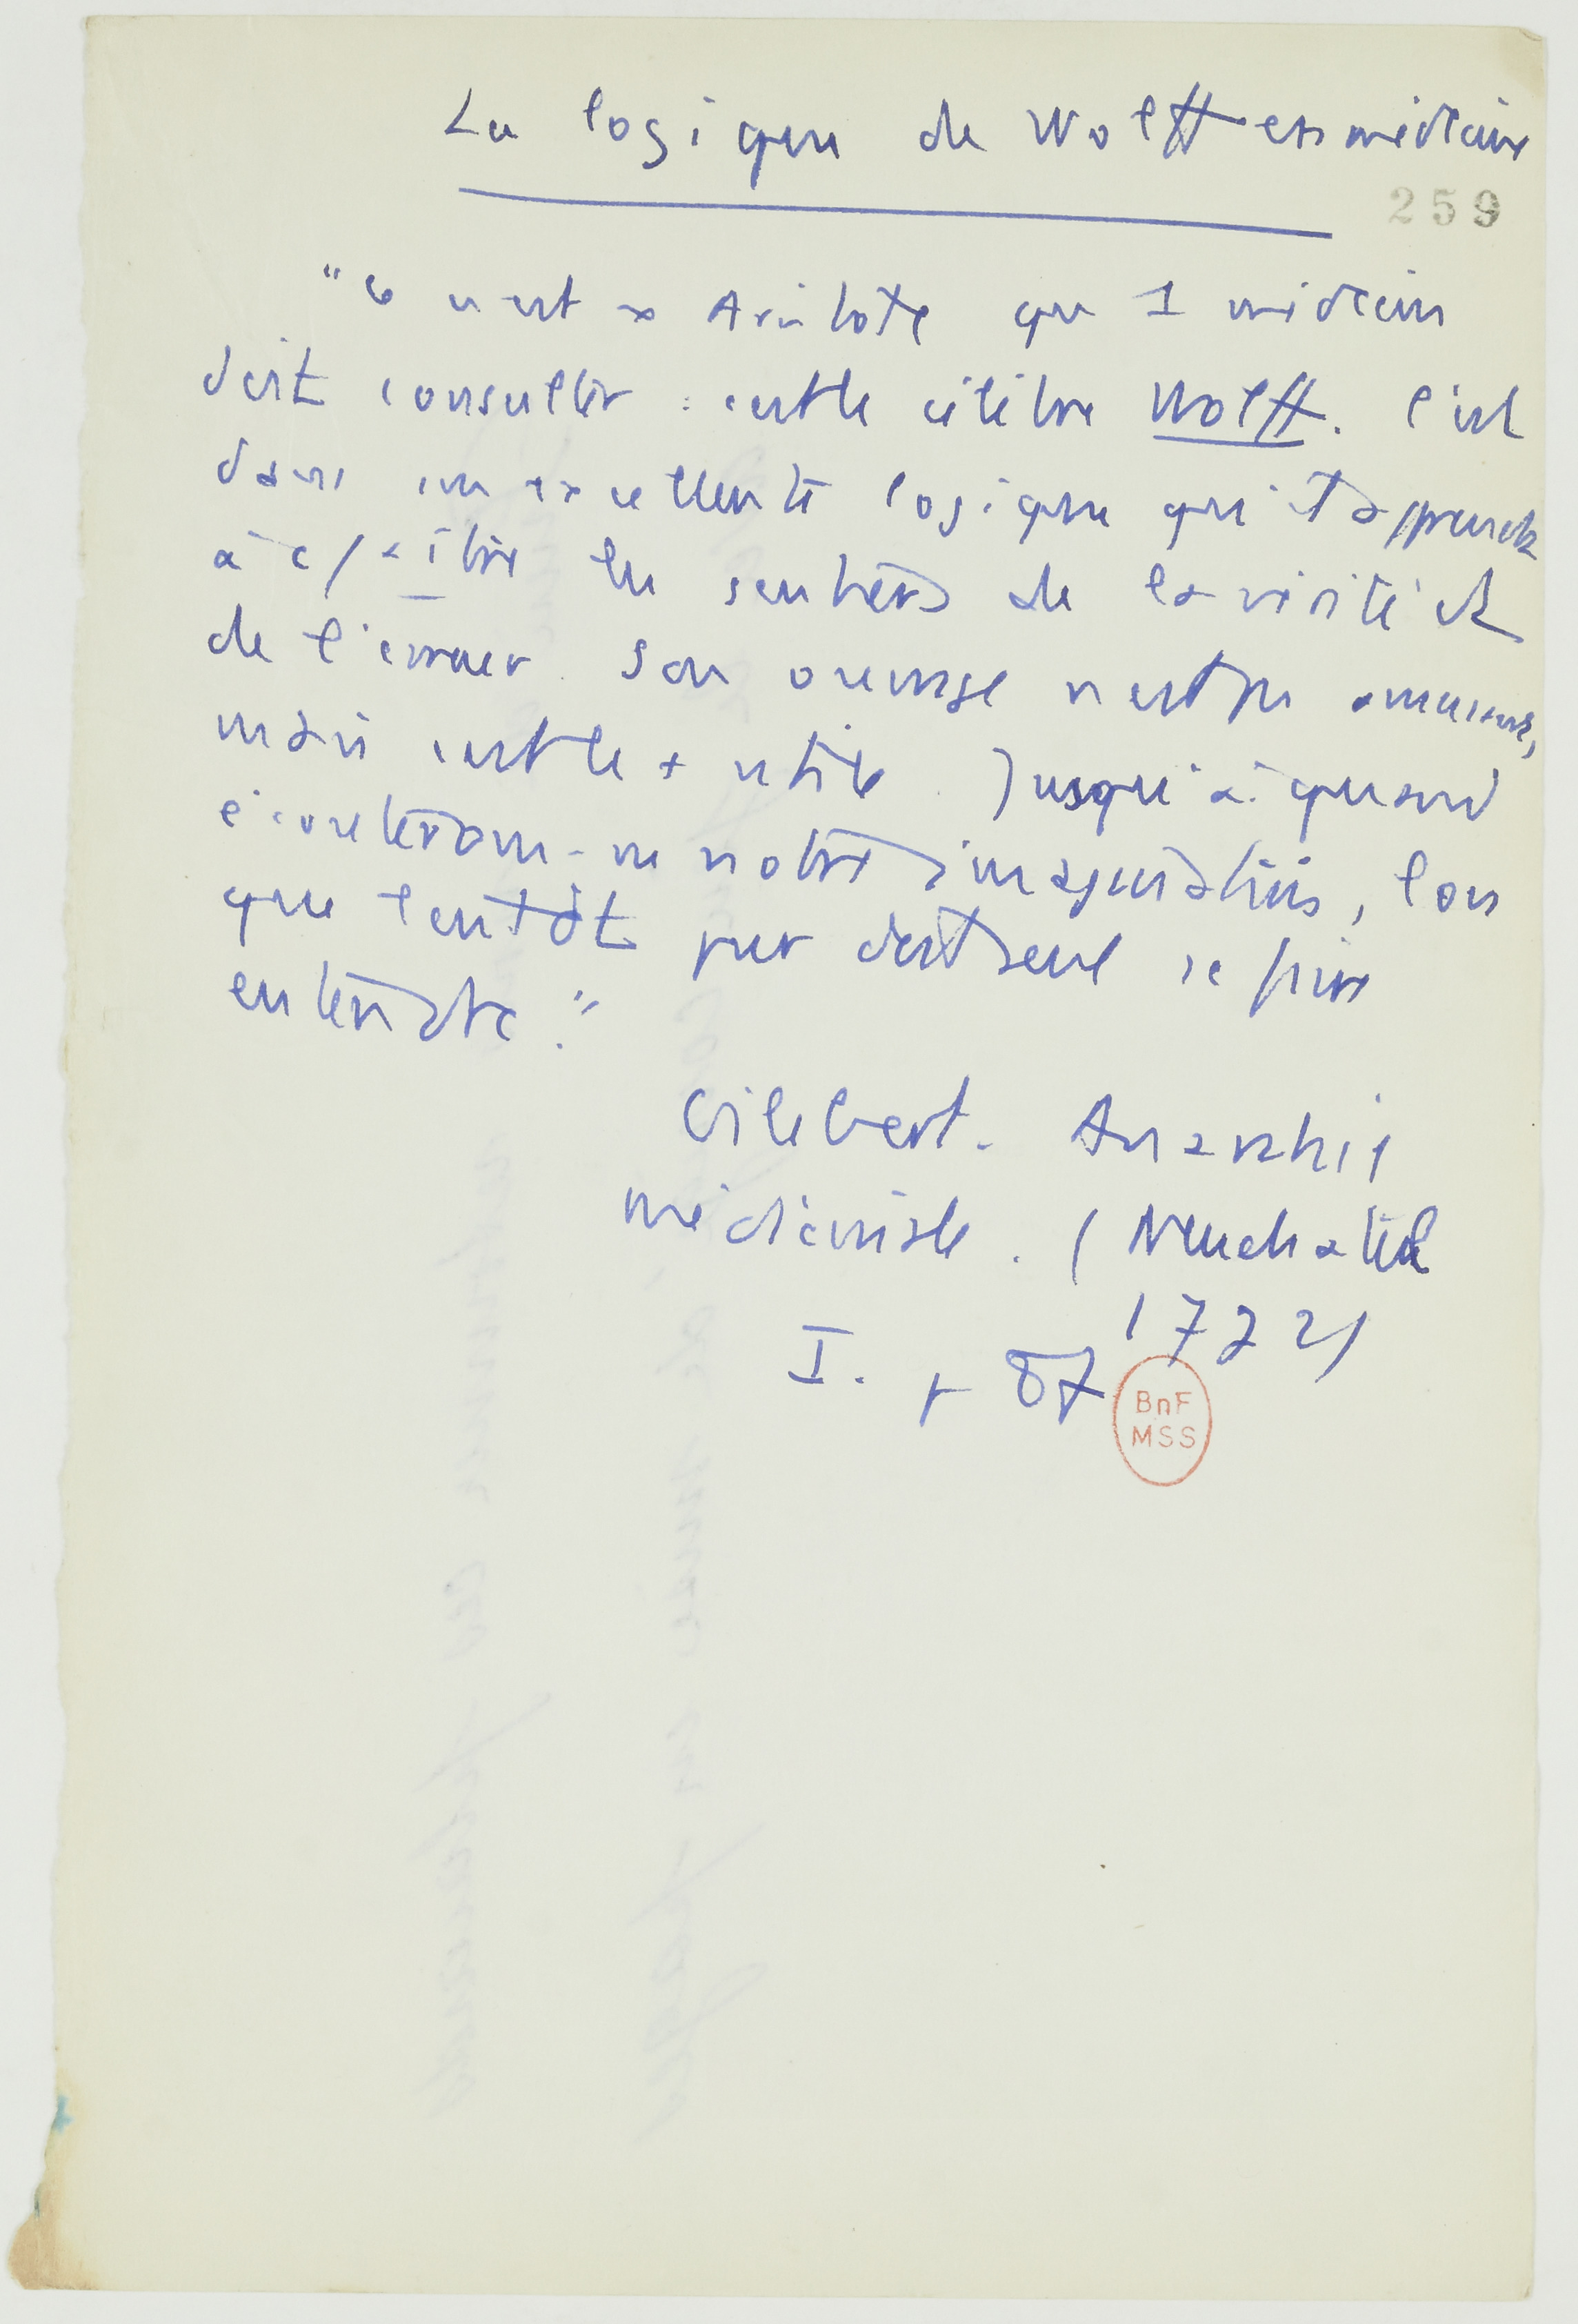 La logique de Wolff en médecine
259
"Ce n'est pas Aristote qu' 1 médecin
doit consulter : c'est le célèbre Wolff. C'est
dans son excellente logique qu'il apprendra
à les sentiers de la vérité et
de l'erreur. Son ouvrage n'est pas amusant,
mais c'est le + utile. Jusqu'à quand
écouterons-ns notre imagination, lors
que l'entdt pur doit seul se faire
entendre."
Gilibert. Anarchie
médicinale. (Neuchatel
1772)
I. p 87
BnF
MSS